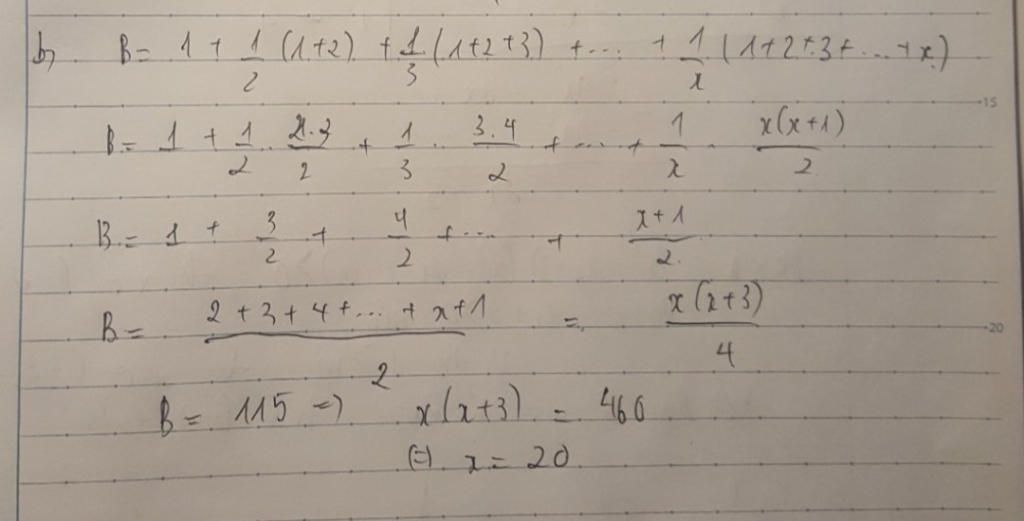 b, B = 1 + 1/2 (1+2) + 1/3 (1+2+3) + ... + 1/x (1+2+3+...+x)
15
B = 1 + 1/2 . 2.3/2 + 1/3 . 3.4/2 + ... + 1/x . x(x+1)/2
B = 1 + 3/2 + 4/2 + ... + x+1/2
B = 2+3+4+...+x+1/2 = x(x+3)/4
20
B = 115 => x(x+3) = 460
(=) x = 20